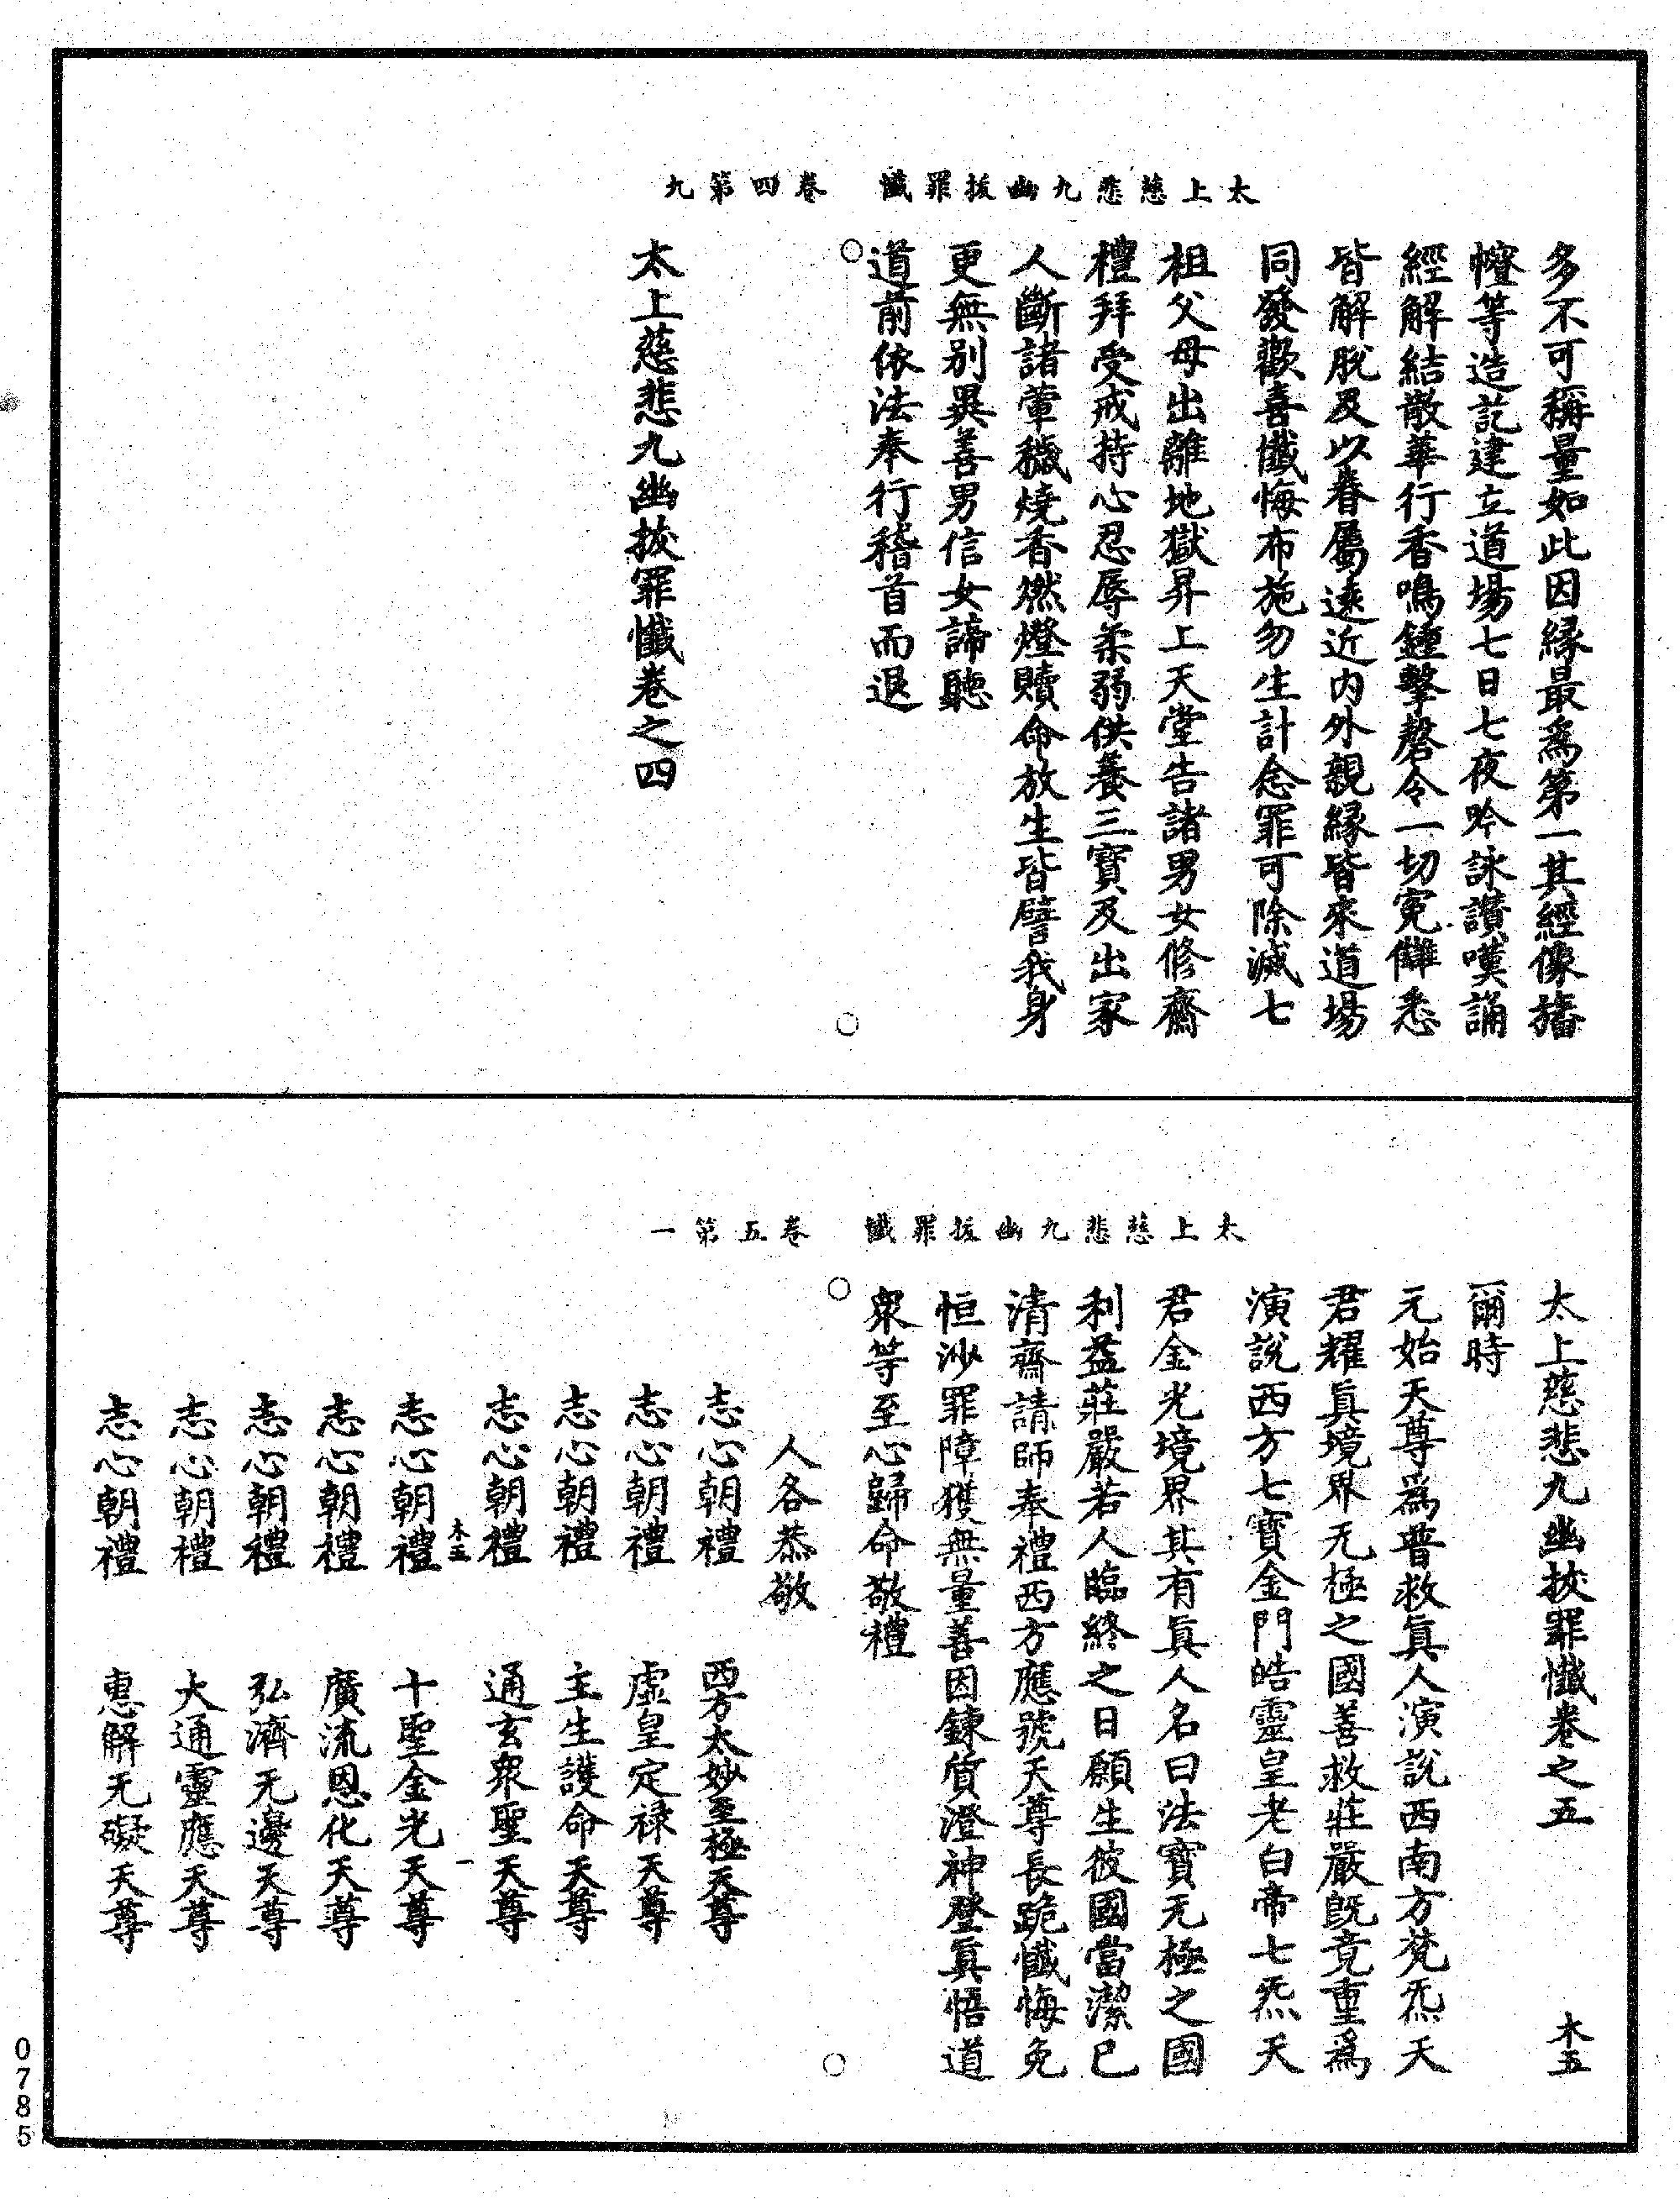 太上慈悲九幽拔罪懺　卷四第九
多不可稱量如此因緣最爲第一其經像旛
幢等造訖建立道場七日七夜吟詠讚嘆誦
經解結散華行香鳴鐘擊磬令一切冤讎悉
皆解脫及以眷屬遠近內外親緣皆來道場
同發歡喜懺悔布施勿生計念罪可除滅七
祖父母出離地獄昇上天堂告諸男女修齋
禮拜受戒持心忍辱柔弱供養三寶及出家
人斷諸葷穢燒香燃燈贖命放生皆譬我身
更無別異善男信女諦聽
道前依法奉行稽首而退
太上慈悲九幽拔罪懺卷之四
太上慈悲九幽拔罪懺　卷五第一
太上慈悲九幽拔罪懺卷之五　木五
爾時
元始天尊爲普救眞人演說西南方梵炁天
君耀眞境界无極之國善救莊嚴既竟重爲
演說西方七寶金門皓靈皇老白帝七炁天
君金光境界其有眞人名曰法寶无極之國
利益莊嚴若人臨終之日願生彼國當潔己
清齋請師奉禮西方應號天尊長跪懺悔免
恒沙罪障獲無量善因鍊質澄神登眞悟道
衆等至心歸命敬禮
人各恭敬
志心朝禮　西方太妙至極天尊
志心朝禮　虛皇定祿天尊
志心朝禮　主生護命天尊
志心朝禮　通玄衆聖天尊
木五　一
志心朝禮　十聖金光天尊
志心朝禮　廣流恩化天尊
志心朝禮　弘濟无邊天尊
志心朝禮　大通靈應天尊
志心朝禮　惠解无礙天尊
0785